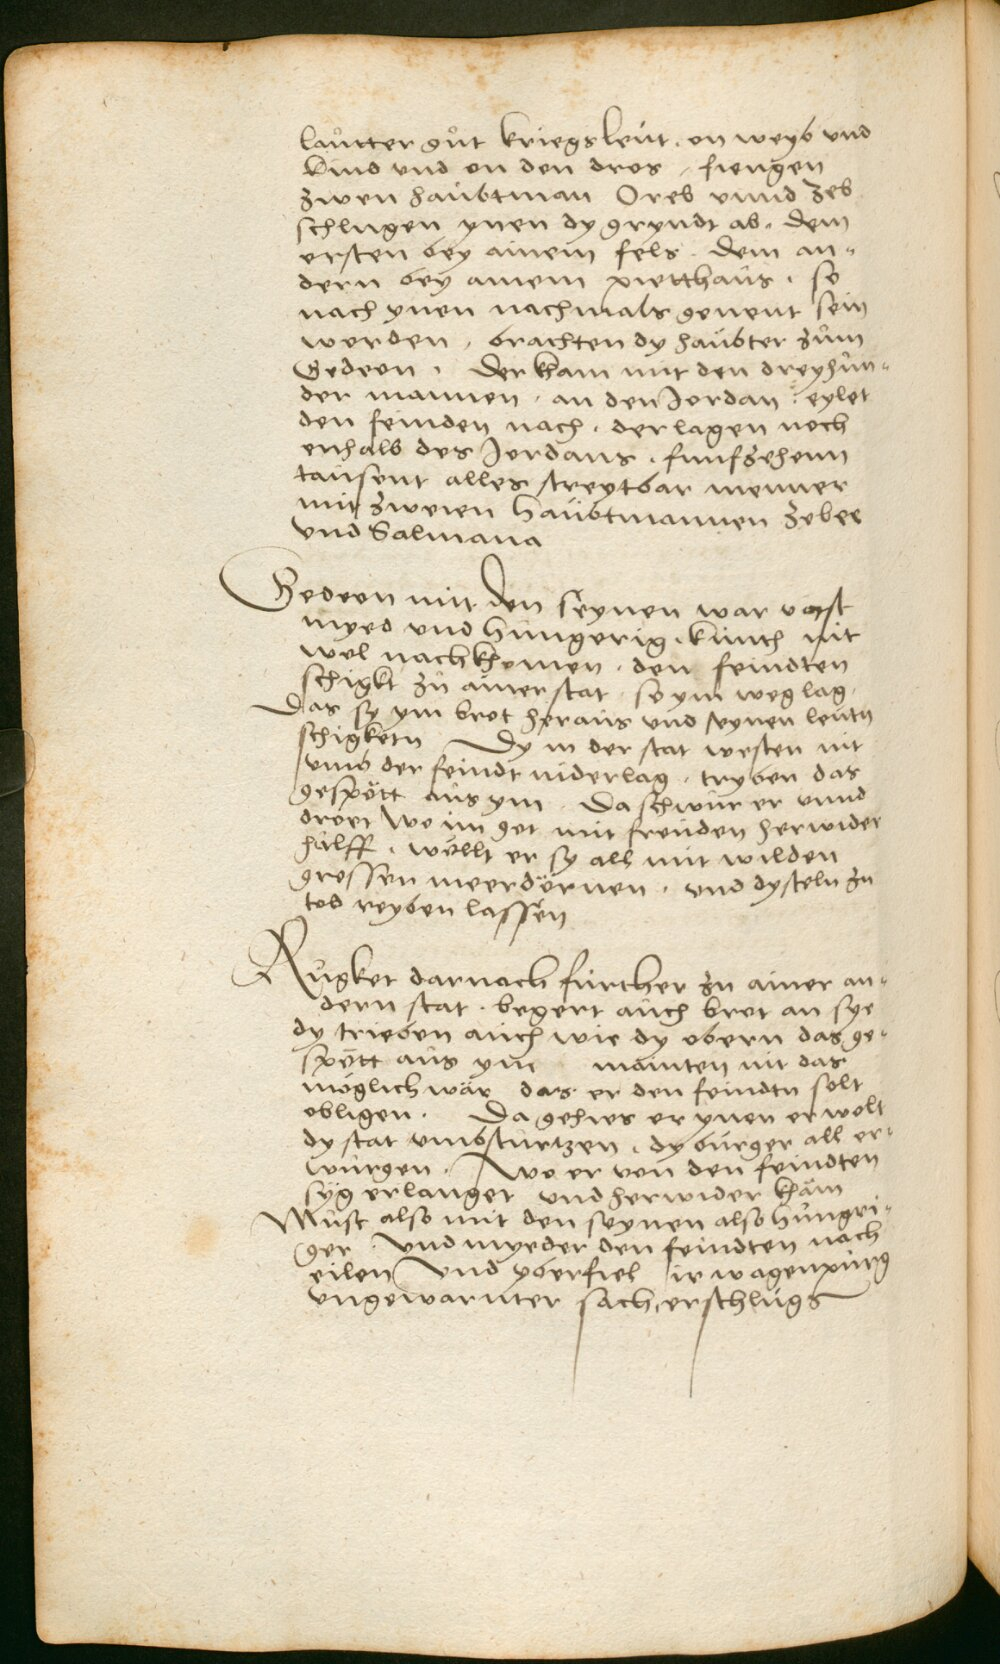 laůtter gůt kriegsleüt . on weyb vnd
kind vnd on den dros , fiengen
zwen haübtman Oreb vnnd Zeb
schlugen ynen dy gryndt ab . dem
ersten bey ainem fels . dem an-
dern bey ainem pietthaüs . so
nach ynen nachmals genent sein
worden , brachten dy haübter zům
Gedeon . Der kham mit den dreyhün-
der mannen . an den Jordan : eylet
den feinden nach . der lagen noch
enhalb des Jordans . funfzehenn
taüsent alles streytbar menner
mit zweien haübtmannen Zebee
vnd Salmana
Gedeon mit den seynen war vast
myed vnd hüngerig . künth nit
wol nachkhomen . den feindten
schigkt zů ainer stat so ym weg lag .
Das sy ym brot heraüs vnd seynen leütn
schigketn Dy in der stat westen nit
vmb der feindt niderlag . tryben das
gespött aüs ym . Da schwür er vnnd
droet Wo im got mit freüden herwider
hülff . wöllt er sy all mit wilden
grossen meerdörnen . vnd dysteln zu
tod reyben lassen
Růgket darnach fürther zu ainer an-
dern stat . begert aüch brot an sye
dy trieben aüch wie dy obern das ge-
spött aüs ym mainten nit das
möglich wär das er den feindtn solt
obligen . Da gehies er ynen er wolt
dy stat vmbstürtzen . dy bürger all er-
würgen . Wo er von den feindten
syg erlanget vnd herwider khäm
Müst also mit den seynen also hüngri-
ger . vnd myeder den feindten nach
eilen Vnd yberfiel ir wagenpürg
vngewarnter sach, erschlügs